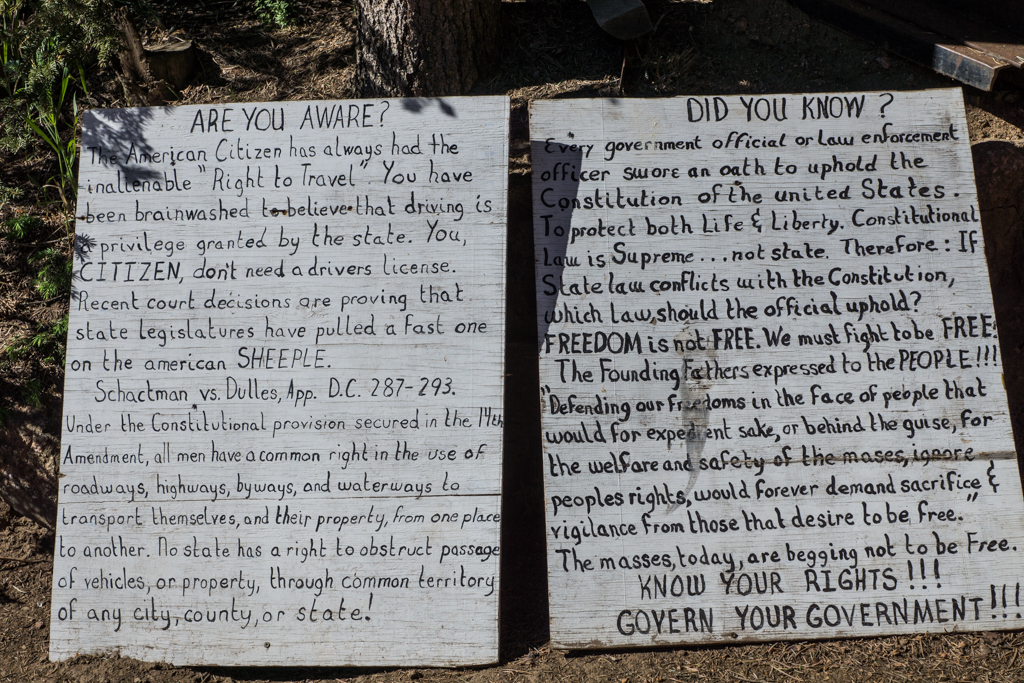 ARE YOU AWARE?
The American Citizen has always had the
inalienable "Right to Travel". You have
been brainwashed to believe that driving is
a privilege granted by the state. You,
CITIZEN, don't need a drivers license.
Recent court decisions are proving that
state legislatures have pulled a fast one
on the american SHEEPLE.
Schactman vs. Dulles, App. D.C. 287-293.
Under the Constitutional provision secured in the 14th
Amendment, all men have a common right in the use of
roadways, highways, byways, and waterways to
transport themselves, and their property, from one place
to another. No state has a right to obstruct passage
of vehicles, or property, through common territory
of any city, county, or state!
DID YOU KNOW?
Every government official or law enforcement
officer swore an oath to uphold the
Constitution of the united States.
To protect both Life & Liberty. Constitutional
Law is Supreme...not state. Therefore: If
State law conflicts with the Constitution,
which Law, should the official uphold?
FREEDOM is not FREE. We must fight to be FREE!
The Founding Fathers expressed to the PEOPLE!!!
"Defending our freedoms in the face of people that
would for expedient sake, or behind the guise, for
the welfare and safety of the mases, ignore
peoples rights, would forever demand sacrifice &
vigilance from those that desire to be free."
The masses, today, are begging not to be Free.
KNOW YOUR RIGHTS!!!
GOVERN YOUR GOVERNMENT!!!